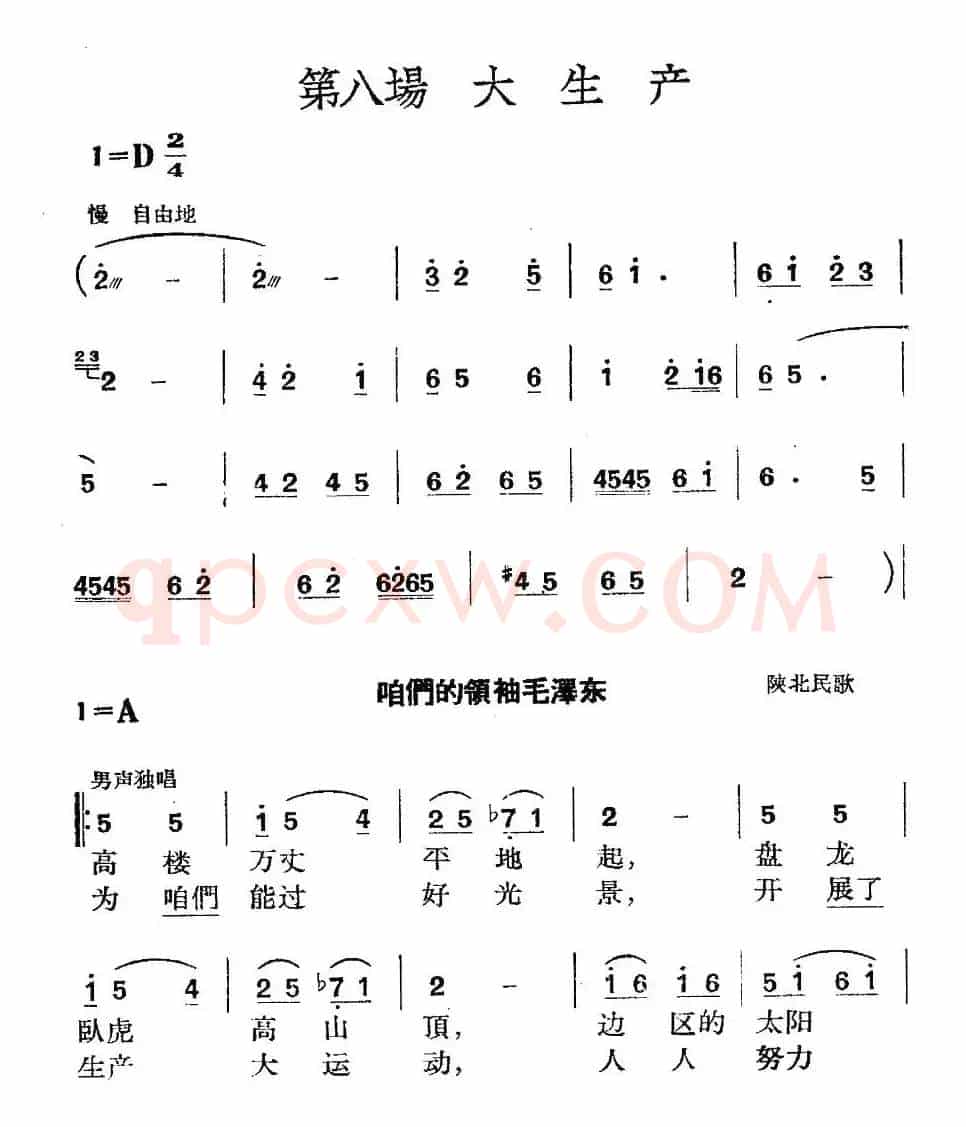 第八場 大生产
1=D 2/4
慢 自由地
(2̇/// – | 2̇/// – | 3̇ 2̇ 5̇ | 6 1̇ . | 6 1̇ 2̇ 3 |
23 2 – | 4̇ 2̇ 1̇ | 6 5 6 | 1̇ 2̇ 1̇6 | 6̇ 5 . |
5 – | 4 2 4 5 | 6 2̇ 6 5 | 4545 6 1̇ | 6 . 5 |
4545 6 2̇ | 6 2̇ 62̇65 | #4 5 6 5 | 2 – )|
qpcxw.COM
咱們的領袖毛澤东
陕北民歌
1=A
男声独唱
‖: 5 5 | 1̇ 5 4̇ | 2 5 ♭7̣ 1 | 2 – | 5 5 |
高 楼 万丈 平 地 起, 盘 龙
为 咱們 能过 好 光 景, 开 展了
1̇ 5 4 | 2 5 ♭7̣ 1 | 2 – | 1̇ 6 1̇ 6 | 5 1̇ 6 1̇ |
臥虎 高 山 頂, 边 区的 太阳
生产 大 运 动, 人 人 努力